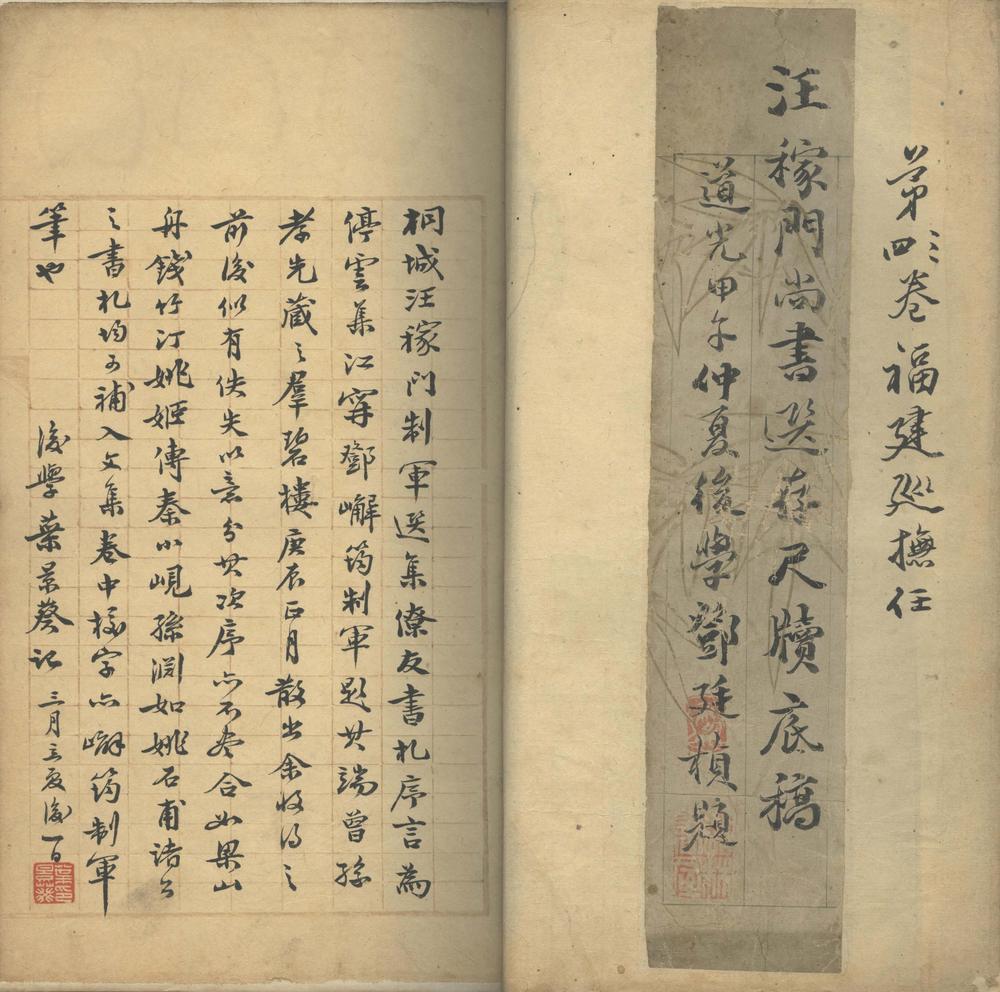 第四卷 福建巡撫任
汪稼門尚書選存尺牘底稿
道光甲午仲夏後學鄧廷楨題
桐城汪稼門制軍選集僚友書札序言為
停雲集江甯鄧嶰筠制軍題其端曾孫
孝先藏之羣碧樓庚辰正月散出余收得之
前後似有佚失以意分其次序亦不盡合如果山
舟錢竹汀姚姬傳秦小峴孫淵如姚石甫諸公
之書札均可補入文集卷中校字亦嶰筠制軍
筆也
後學葉景葵記 三月立夏後一日